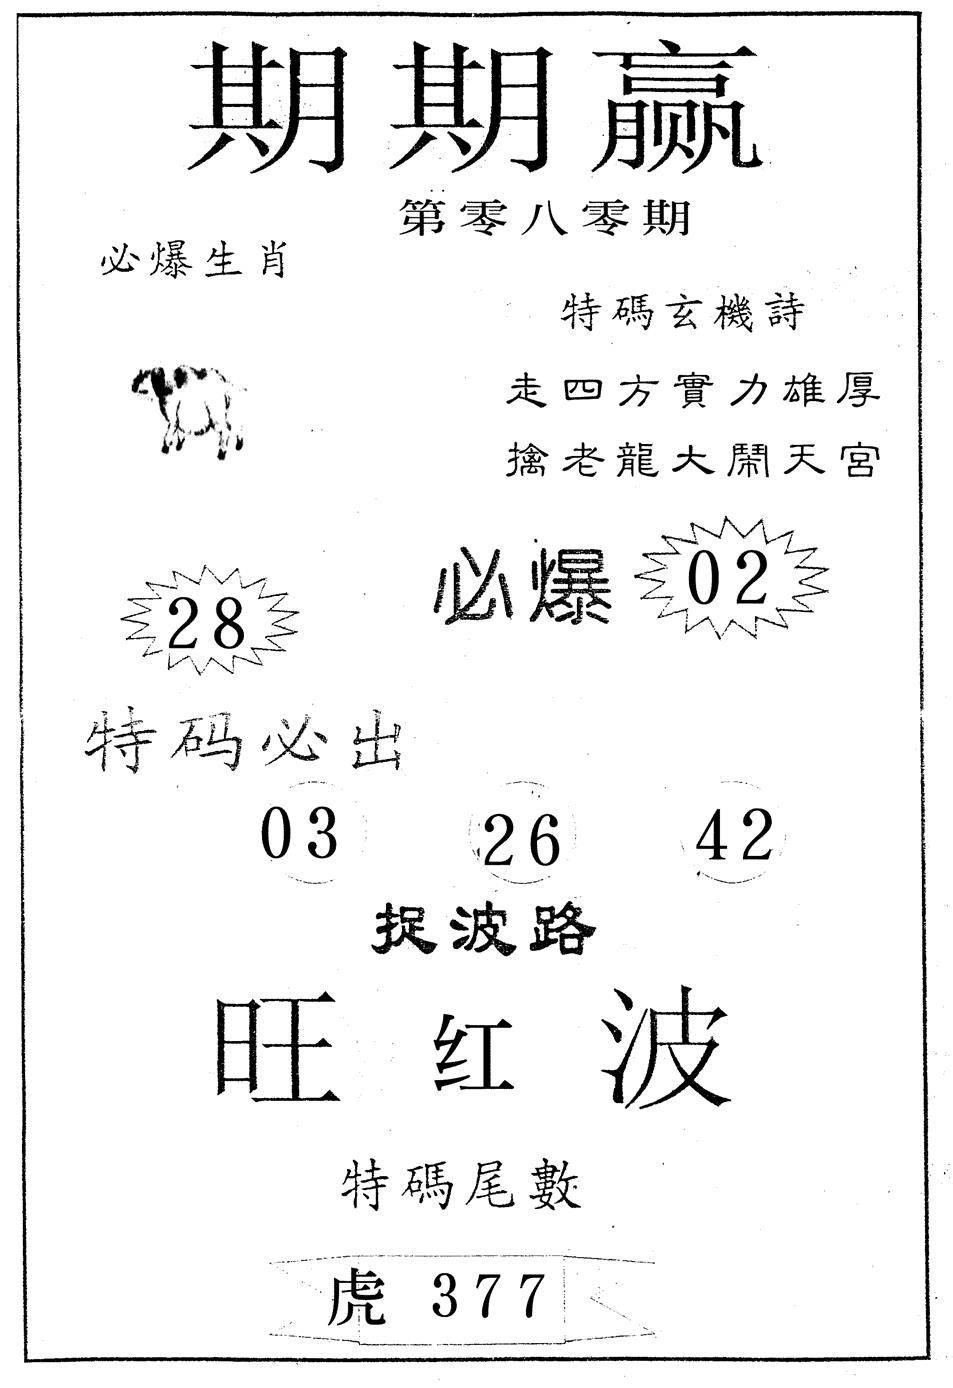 期期赢
第零八零期
必爆生肖
特碼玄機詩
走四方實力雄厚
擒老龍大鬧天宮
必爆 02
28
特码必出
03 26 42
捉波路
旺红波
特碼尾數
虎 377